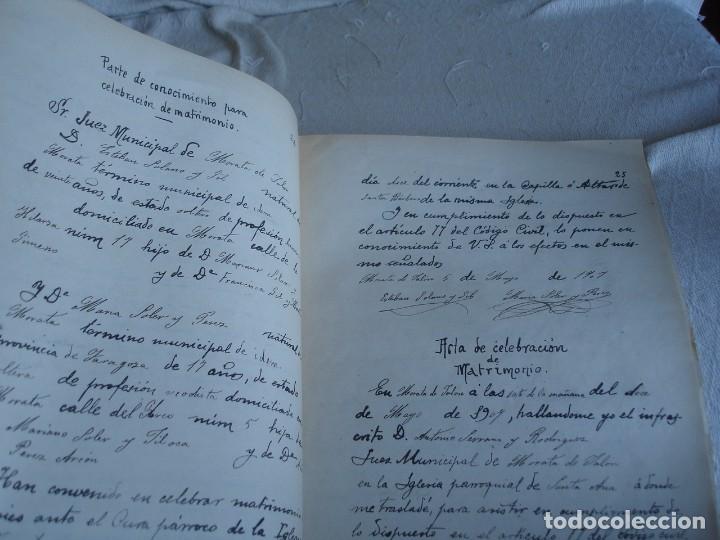 Parte de conocimiento para
celebración de matrimonio.
Sr. Juez Municipal de Morata de
D. Esteban Solano y Gil natural de
Morata término municipal de idem
de veinte años, de estado soltero de profesión
domiciliado en Morata calle de la
núm 17 hijo de D. Mariano
y de Dª Francisca
Y Dª Maria Soler y Perez natural
Morata término municipal de idem
Provincia de Zaragoza de 17 años, de estado
de profesión modista domiciliada en
Morata calle del Arco núm 5 hija
Mariano Soler y Tiloca y de Dª
Perez
Han convenido en celebrar matrimonio
ante el Cura párroco de la Iglesia
25
dia doce del corriente en la Capilla ó Altar de
de la misma Iglesia.
Y en cumplimiento de lo dispuesto en
el artículo 77 del Código Civil, lo ponen en
conocimiento de V.S. á los efectos en el mis-
mo señalados
Morata de Jalon 5 de Mayo de 1907
Esteban Solano y Gil Maria Soler y Perez
Acta de celebración
de
Matrimonio.
En Morata de Jalon á las siete de la mañana del doce
de Mayo de 1907, hallandome yo el infras-
crito D. Antonio Serrano y Rodriguez
Juez Municipal de Morata de Jalon
en la Iglesia parroquial de Santa Ana á donde
me trasladé, para asistir en cumplimiento de
lo dispuesto en el artículo 77 del
todocoleccion.net